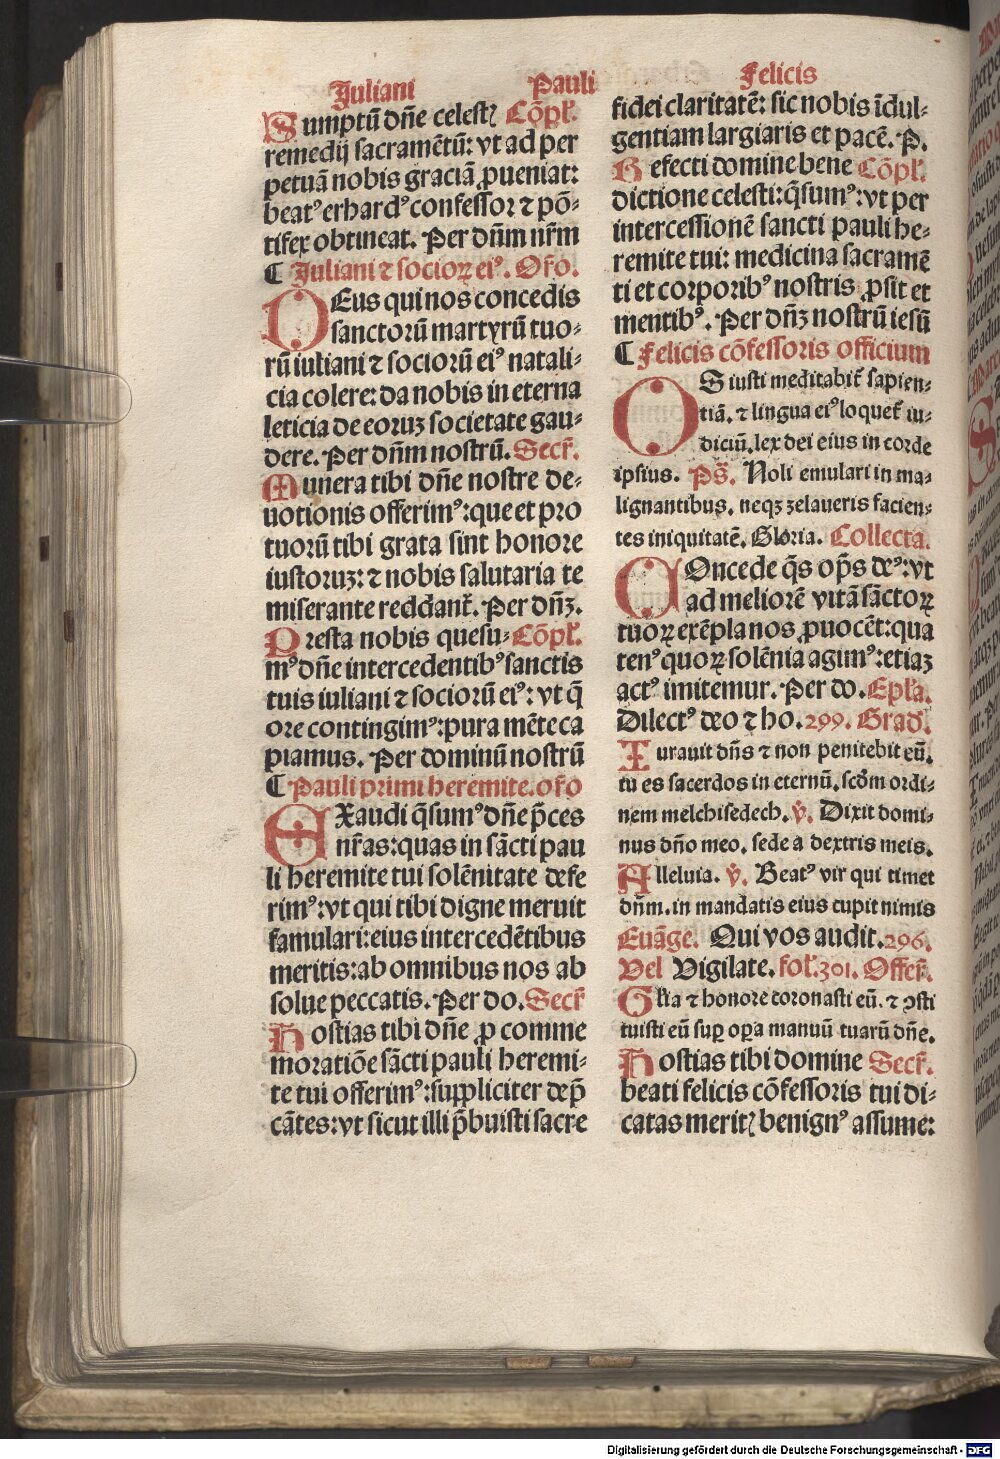 Juliani Pauli Felicis
Sumptū dn̄e celestꝭ Cōpl̄.
remedij sacramētū: vt ad per
petuā nobis graciā ꝓueniat:
beatꝰ erhardꝰ confessor ⁊ pō-
tifex obtineat. Per dn̄m nr̄m
¶ Juliani ⁊ socioꝝ eiꝰ. Oro.
DEus qui nos concedis
sanctorū martyrū tuo-
rū iuliani ⁊ sociorū eiꝰ natali-
cia colere: da nobis in eterna
leticia de eoruꝫ societate gau-
dere. Per dn̄m nostrū. Secr̄.
Munera tibi dn̄e nostre de-
uotionis offerimꝰ: que et pro
tuorū tibi grata sint honore
iustoruꝫ: ⁊ nobis salutaria te
miserante reddant̄. Per dn̄ꝫ.
Presta nobis quesu- Cōpl̄.
mꝰ dn̄e intercedentibꝰ sanctis
tuis iuliani ⁊ sociorū eiꝰ: vt q̄
ore contingimꝰ: pura mēte ca
piamus. Per dominū nostrū
¶ Pauli primi heremite. oro
EXaudi q̄sumꝰ dn̄e p̄ces
nr̄as: quas in sācti pau
li heremite tui solēnitate defe
rimꝰ: vt qui tibi digne meruit
famulari: eius intercedētibus
meritis: ab omnibus nos ab
solue peccatis. Per do. Secr̄
Hostias tibi dn̄e ꝓ comme
moratiōe sācti pauli heremi-
te tui offerimꝰ: suppliciter dep̄
cātes: vt sicut illi p̄buisti sacre
fidei claritatē: sic nobis īdul-
gentiam largiaris et pacē. P.
Refecti domine bene Cōpl̄.
dictione celesti: q̄sumꝰ: vt per
intercessionē sancti pauli he-
remite tui: medicina sacramē
ti et corporibꝰ nostris ꝓsit et
mentibꝰ. Per dn̄ꝫ nostrū iesū
¶ Felicis cōfessoris officium
OS iusti meditabit̄ sapien-
tiā. ⁊ lingua eiꝰ loquet̄ iu-
diciū. lex dei eius in corde
ipsius. Ps̄. Noli emulari in ma-
lignantibus. neqꝫ zelaueris facien-
tes iniquitatē. Gloria. Collecta.
COncede q̄s op̄s deꝰ: vt
ad meliorē vitā sāctoꝝ
tuoꝝ exēpla nos ꝓuocēt: qua
tenꝰ quoꝝ solēnia agimꝰ: etiaꝫ
actꝰ imitemur. Per do. Epl̄a.
Dilectꝰ deo ⁊ ho. 299. Grad̄.
Iurauit dn̄s ⁊ non penitebit eū.
tu es sacerdos in eternū. scd̄m ordi-
nem melchisedech. v̄. Dixit domi-
nus dn̄o meo. sede a dextris meis.
Alleluia. v̄. Beatꝰ vir qui timet
dn̄m. in mandatis eius cupit nimis
Euāge. Qui vos audit. 296.
Vel Vigilate. fol̄. 301. Offer̄.
Gl̄ia ⁊ honore coronasti eū. ⁊ ꝯsti
tuisti eū suꝑ oꝑa manuū tuarū dn̄e.
Hostias tibi domine Secr̄.
beati felicis cōfessoris tui di-
catas meritꝭ benignꝰ assume:
Digitalisierung gefördert durch die Deutsche Forschungsgemeinschaft - DFG